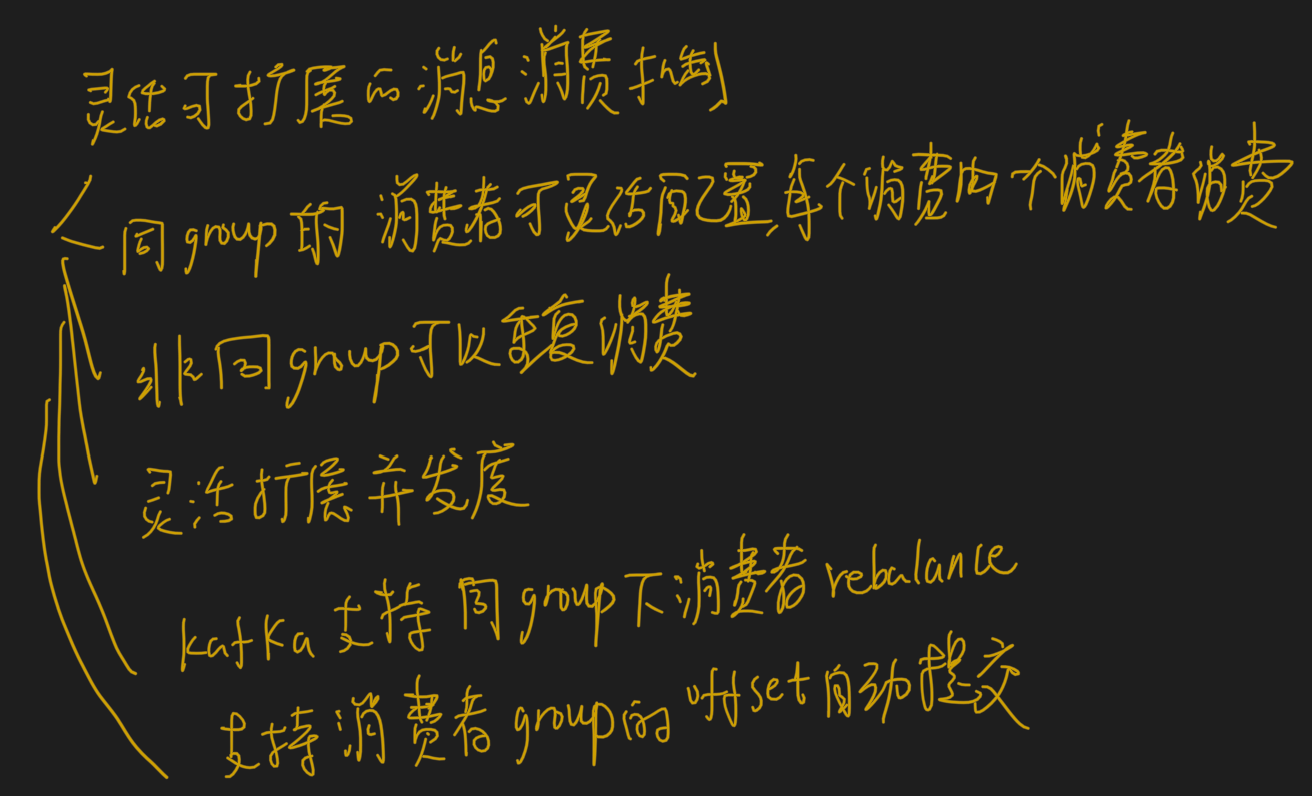 灵活可扩展的消息消费机制
同group的 消费者可灵活配置,每个消费由一个消费者消费
非同group可以重复消费
灵活扩展并发度
kafka支持 同group下消费者rebalance
支持消费者group的offset自动提交